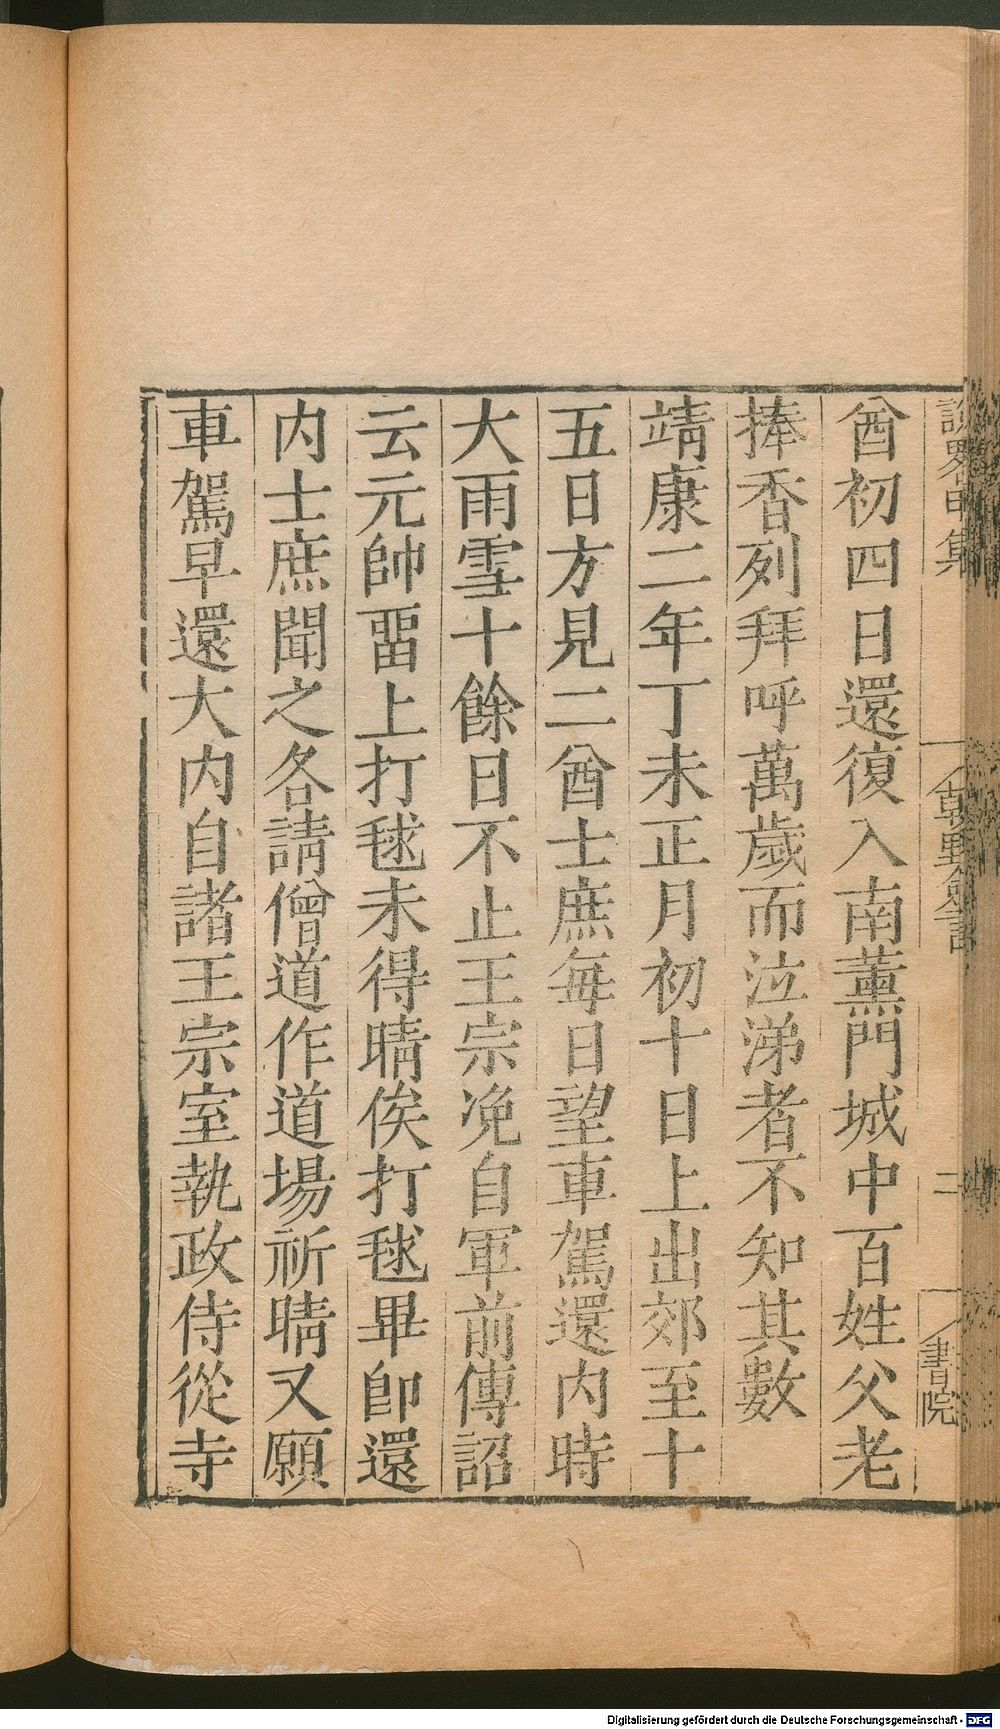 酋初四日還復入南薰門城中百姓父老
捧香列拜呼萬歲而泣涕者不知其數
靖康二年丁未正月初十日上出郊至十
五日方見二酋士庶每日望車駕還内時
大雨雪十餘日不止王宗沇自軍前傳詔
云元帥畱上打毬未得晴俟打毬畢卽還
内士庶聞之各請僧道作道場祈晴又願
車駕早還大内自諸王宗室執政侍從寺
朝野僉言
二
書院
Digitalisierung gefördert durch die Deutsche Forschungsgemeinschaft - DFG